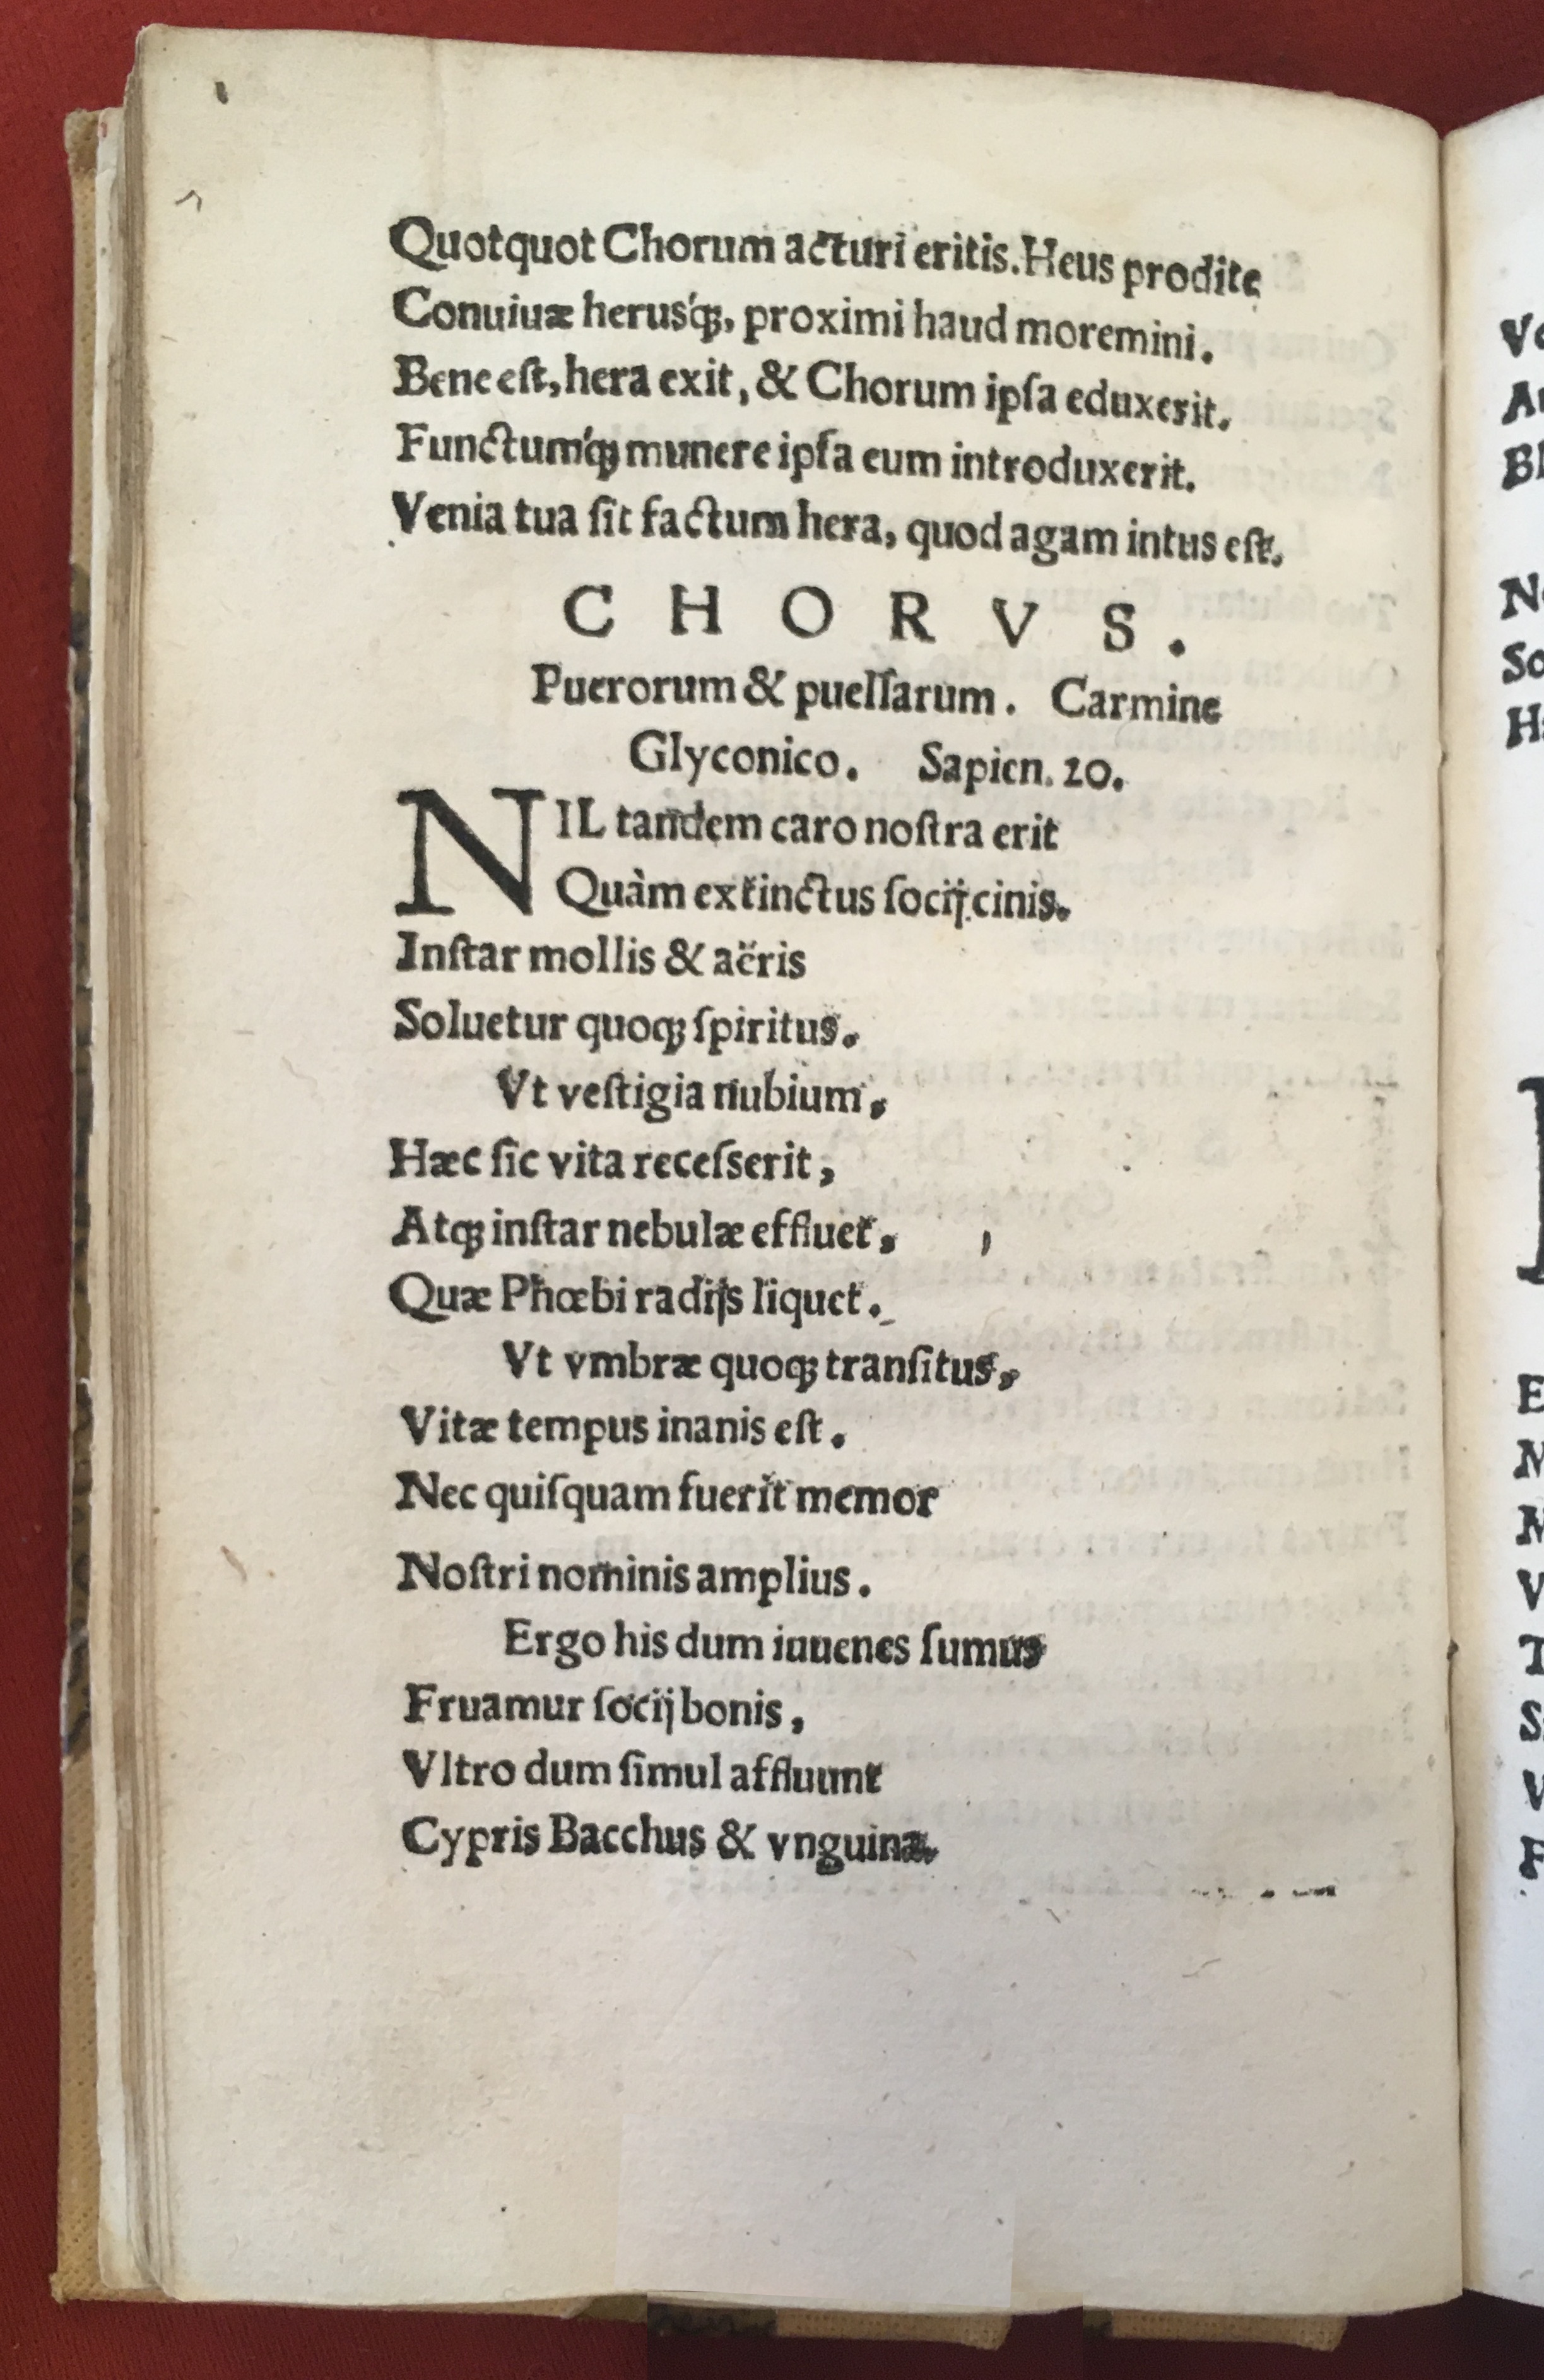 Quotquot Chorum acturi eritis. Heus prodite
Conuiuæ herusq́ꝫ, proximi haud moremini.
Bene eſt, hera exit, & Chorum ipſa eduxerit.
Functumq́ꝫ munere ipſa eum introduxerit.
Venia tua ſit factum hera, quod agam intus eſt.
CHORVS.
Puerorum & puellarum. Carmine
Glyconico. Sapien. 20.
NIL tandem caro noſtra erit
Quàm extinctus ſocij cinis.
Inſtar mollis & aëris
Soluetur quoqꝫ ſpiritus.
Vt veſtigia nubium,
Hæc ſic vita receſserit,
Atqꝫ inſtar nebulæ effluet,
Quæ Phœbi radijs liquet.
Vt vmbræ quoqꝫ tranſitus,
Vitæ tempus inanis eſt.
Nec quiſquam fuerit memor
Noſtri nominis amplius.
Ergo his dum iuuenes ſumus
Fruamur ſocij bonis,
Vltro dum ſimul affluunt
Cypris Bacchus & vnguina.
Ve
Bl
So
E
M
M
V
T
V